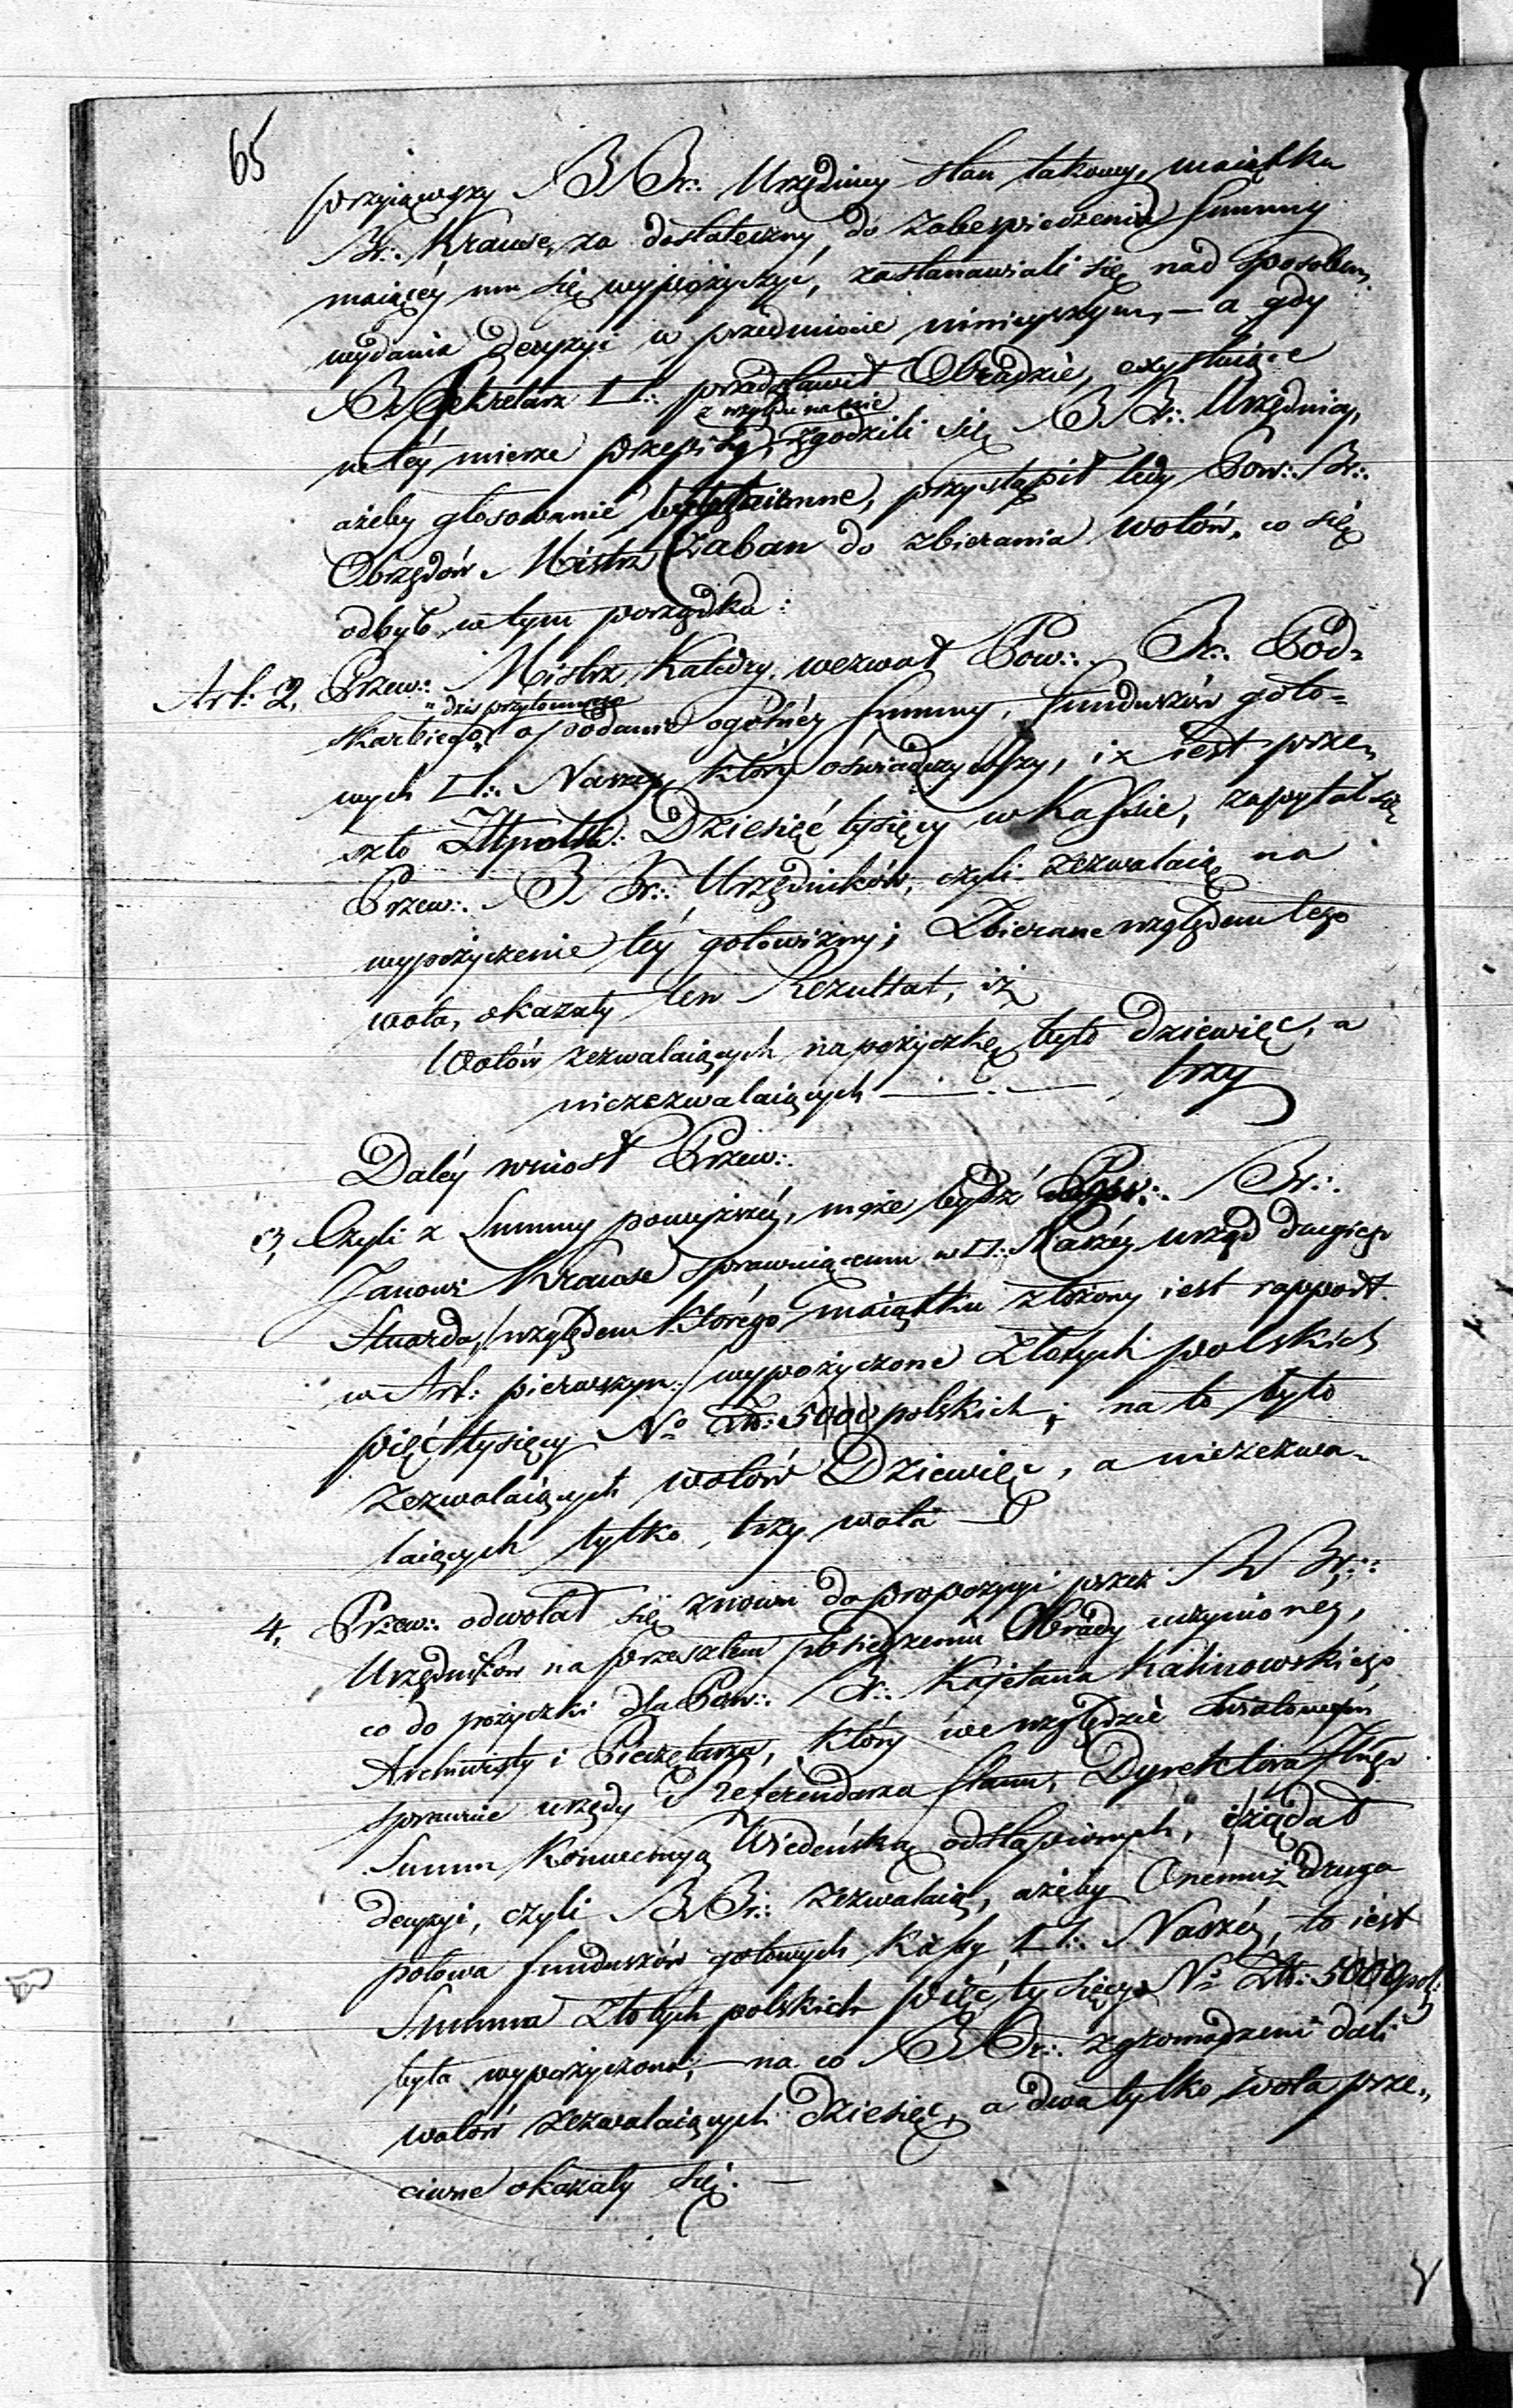 65
przyiąwszy BBr∴ Urzędnicy stan takowy, maiątku
Br∴ Krause, za dostateczny, do zabezpieczenia Summy
maiącéy mu się wypożyczyć, zastanawiali się nad sposobem
wydania decyzyi w przedmiocie ninieyszym, — a gdy
Br Sekretarz □∴ przedstawił Obradzie, exystuiące
w téy mierze przepisy, z względu na nie zgodzili się BBr∴ Urzędnicy,
ażeby głosowanie było taiemne, przystąpił tedy Pow∴ Br∴
Obrzędów Mistrz Czaban do zbierania wotów, co się
odbyło w tym porządku:
Art: 2, Przew∴ Mistrz Katedry wezwał Pow∴ Br∴ Pod=
skarbiego "dziś przytomnego" o podanie ogólnéy Summy, funduszów goto=
wych □∴ Naszéy, który oświadczywszy, iż iest prze„
szło Złtpolsk: Dziesięć tysięcy w Kassie, zapytał się
Przew∴ BBr∴ Urzędników, czyli zezwalaią na
wypożyczenie téy gotowizny; Zbierane względem tego
wota, okazały ten Rezultat, iż
Wotów zezwalaiących na pożyczkę było dziewięć, a
niezezwalaiących — . — trzy
Daléy wniósł Przew∴
3, Czyli z Summy powyższéy, może bydź Pow∴ Br∴
Janowi Krause sprawuiącemu w □∴ Naszéy urząd drugiego
Stuarda, /względem którego maiątku złożony iest rapport
w Art: pierwszym:/ wypożyczone Złotych polskich
pięć tysięcy No Złt: 5000 polskich; na to było
Zezwalaiących wotów Dziewięć, a niezezwa=
laiących tylko, trzy wota —
4, Przew∴ odwołał się znowu do propozycyi przez BBr∴
Urzędników na przeszłem posiedzeniu Obrady uczynionéy,
co do pożyczki dla Pow∴ Br∴ Kajetana Kalinowskiego
Archiwisty i Pieczętarza, który we względzie światowym
sprawuie urzędy Referendarza Stanu, Dyrektora Długo
Summ Konwencyą Wiedeńską odstąpionych, i żądał
decyzyi, czyli BBr∴ zezwalaią, ażeby Onemuż druga
połowa funduszów gotowych Kassy □∴ Naszéy, to iest
Summa Złotych polskich pięć tysięcy No Złt: 5000 pol:
była wypożyczona; — na co BBr∴ zgromadzeni dali
wotów zezwalaiących dziesięć, a dwa tylko wota prze„
ciwne okazały się. —